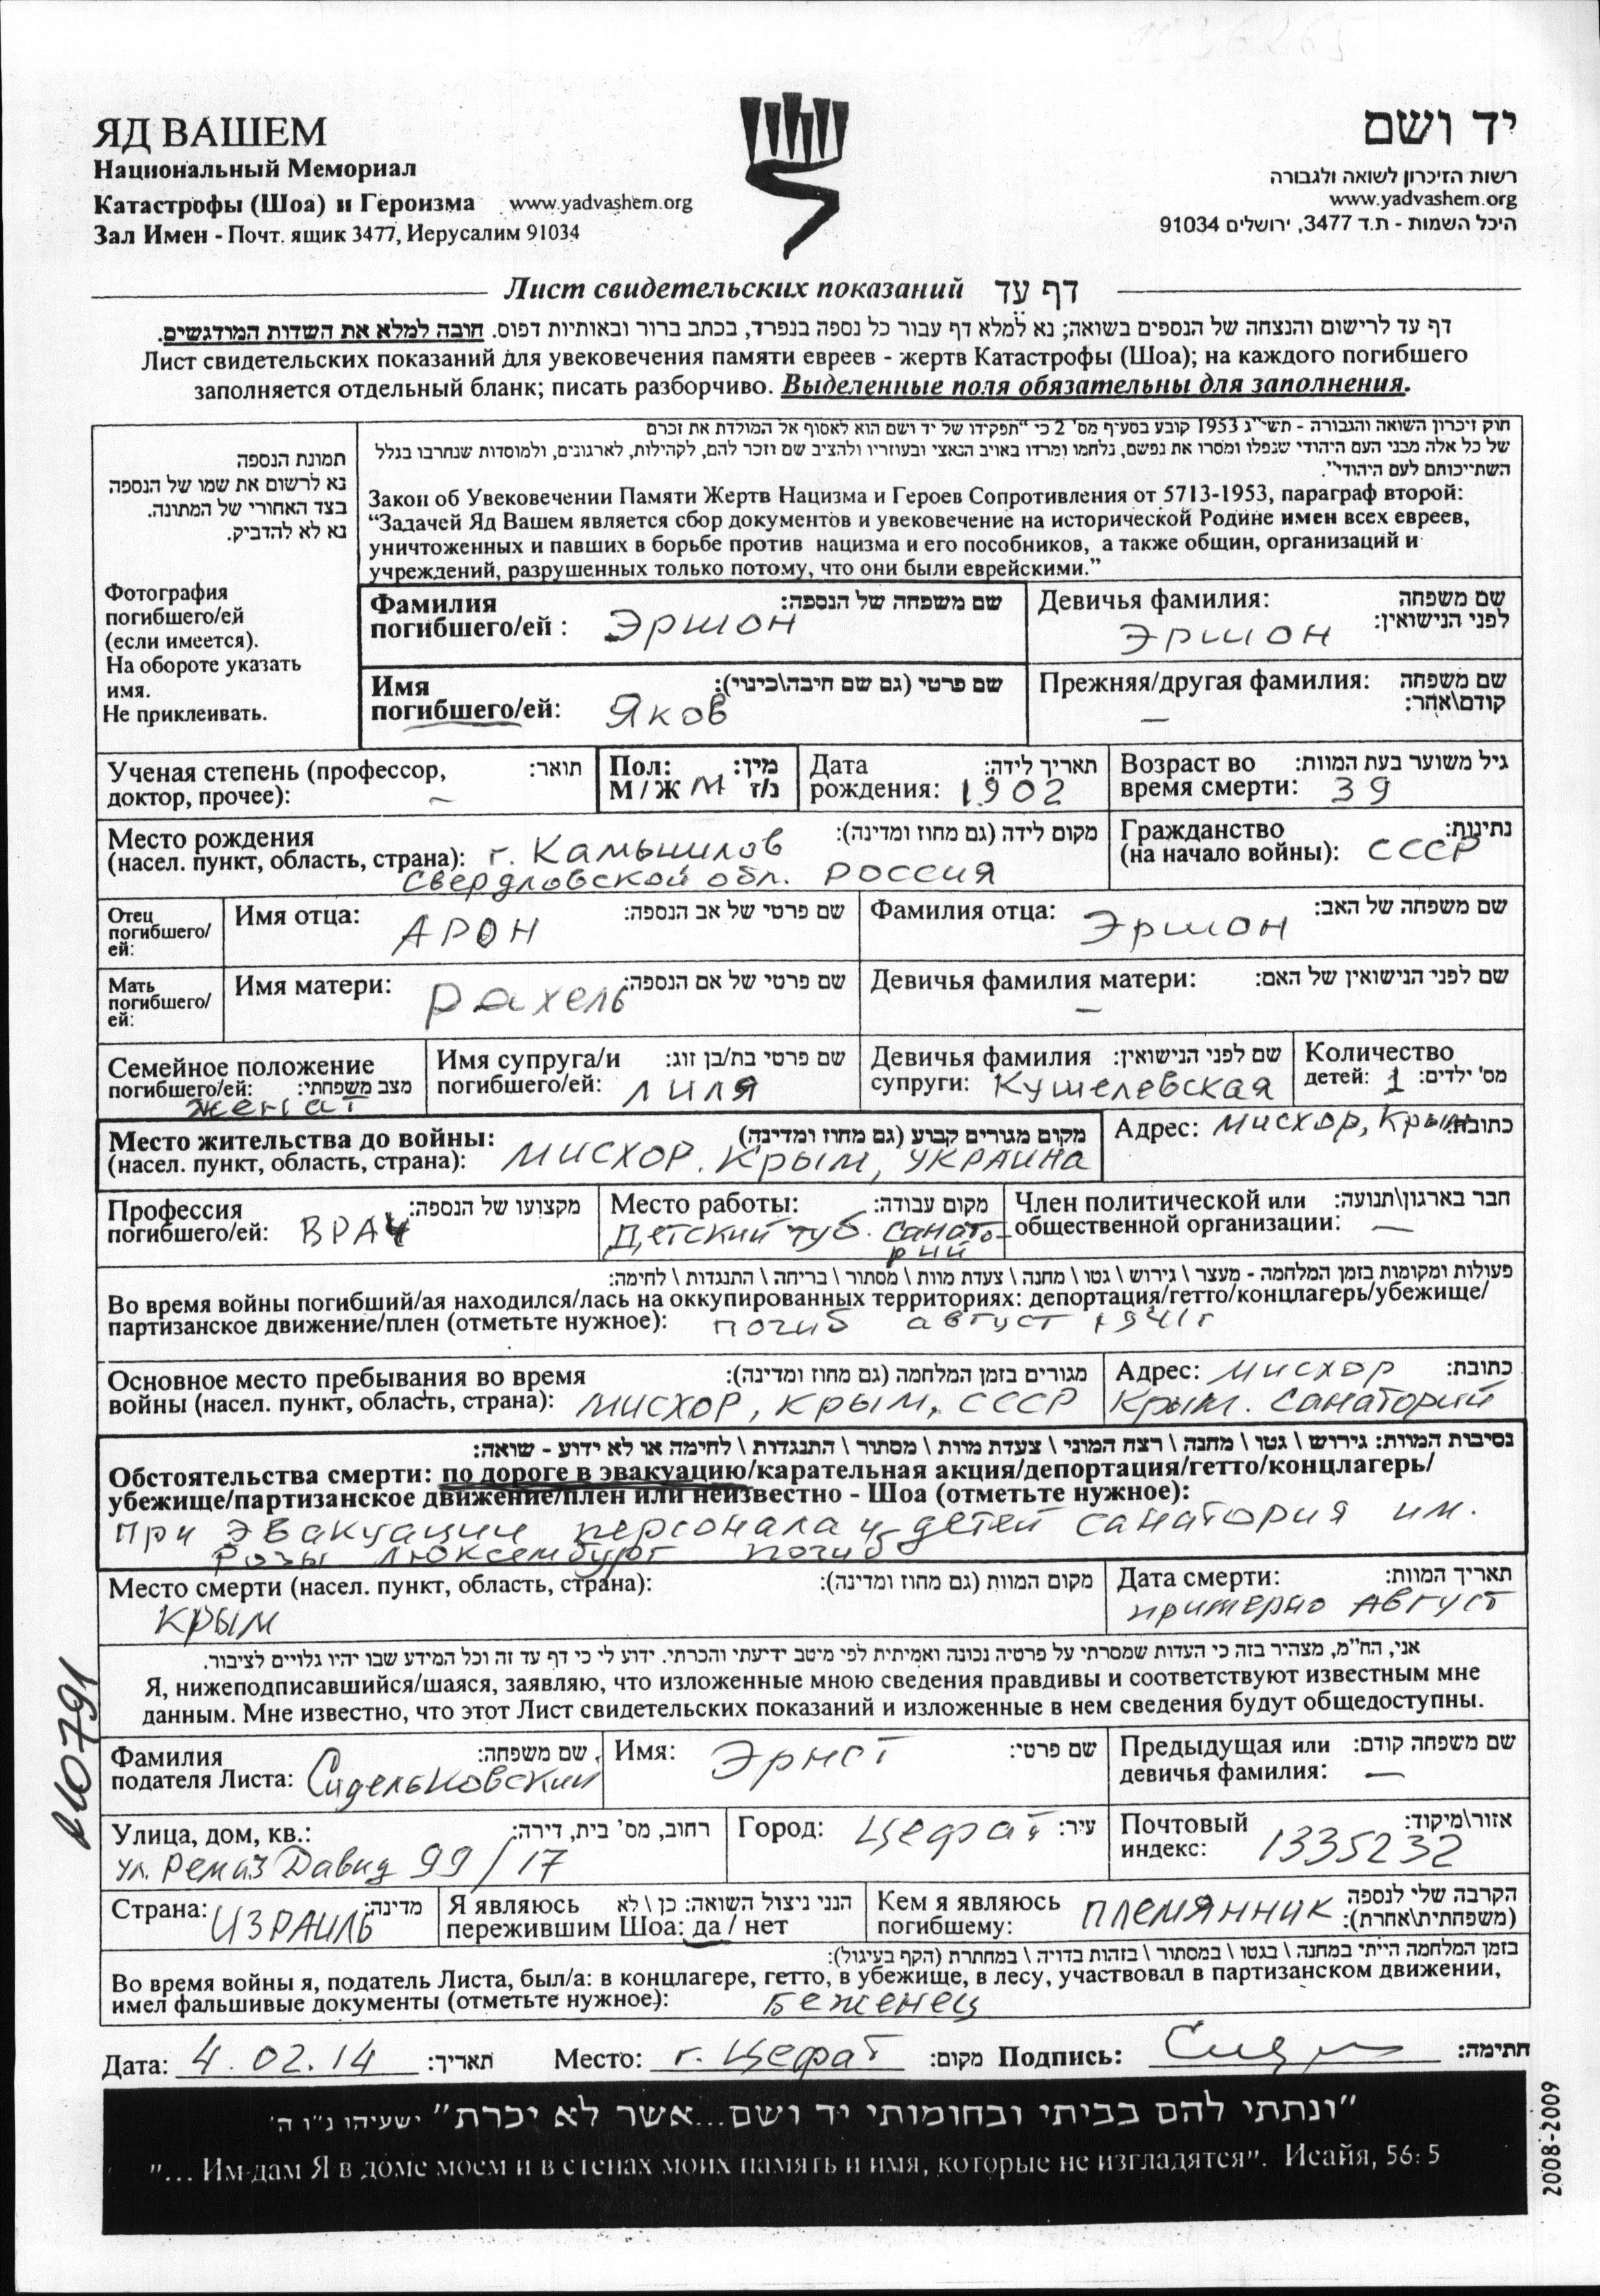 ЯД ВАШЕМ
Национальный Мемориал
Катастрофы (Шоа) и Героизма www.yadvashem.org
Зал Имен - Почт. ящик 3477, Иерусалим 91034
יד ושם
רשות הזיכרון לשואה ולגבורה
www.yadvashem.org
היכל השמות - ת.ד 3477, ירושלים 91034
Лист свидетельских показаний דף עד
דף עד לרישום והנצחה של הנספים בשואה; נא למלא דף עבור כל נספה בנפרד, בכתב ברור ובאותיות דפוס. חובה למלא את השדות המודגשים.
Лист свидетельских показаний для увековечения памяти евреев - жертв Катастрофы (Шоа); на каждого погибшего
заполняется отдельный бланк; писать разборчиво. Выделенные поля обязательны для заполнения.
תמונת הנספה
נא לרשום את שמו של הנספה
בצד האחורי של המתונה.
נא לא להדביק.
Фотография
погибшего/ей
(если имеется).
На обороте указать
имя.
Не приклеивать.
חוק זיכרון השואה והגבורה - תשי"ג 1953 קובע בסעיף מס' 2 כי "תפקידו של יד ושם הוא לאסוף אל המולדת את זכרם
של כל אלה מבני העם היהודי שנפלו ומסרו את נפשם, נלחמו ומרדו באויב הנאצי ובעוזריו ולהציב שם וזכר להם, לקהילות, לארגונים, ולמוסדות שנחרבו בגלל
השתייכותם לעם היהודי".
Закон об Увековечении Памяти Жертв Нацизма и Героев Сопротивления от 5713-1953, параграф второй:
“Задачей Яд Вашем является сбор документов и увековечение на исторической Родине имен всех евреев,
уничтоженных и павших в борьбе против нацизма и его пособников, а также общин, организаций и
учреждений, разрушенных только потому, что они были еврейскими.”
Фамилия שם משפחה של הנספה:
погибшего/ей : Эршон
Девичья фамилия: שם משפחה
לפני הנישואין:
Эршон
Имя שם פרטי (גם שם חיבה\כינוי):
погибшего/ей: Яков
Прежняя/другая фамилия: שם משפחה
קודם\אחר:
—
Ученая степень (профессор, תואר:
доктор, прочее): –
Пол: מין:
М / Ж М ז/נ
Дата תאריך לידה:
рождения: 1902
Возраст во גיל משוער בעת המוות:
время смерти: 39
Место рождения מקום לידה (גם מחוז ומדינה):
(насел. пункт, область, страна): г. Камышлов
Свердловской обл. Россия
Гражданство נתינות:
(на начало войны): СССР
Отец
погибшего/
ей:
Имя отца: שם פרטי של אב הנספה:
АРОН
Фамилия отца: שם משפחה של האב:
Эршон
Мать
погибшего/
ей:
Имя матери: שם פרטי של אם הנספה:
Рахель
Девичья фамилия матери: שם לפני הנישואין של האם:
—
Семейное положение
погибшего/ей: מצב משפחתי:
женат
Имя супруга/и שם פרטי בת/בן זוג:
погибшего/ей: Лиля
Девичья фамилия שם לפני הנישואין:
супруги: Кушелевская
Количество
детей: 1 מס' ילדים:
Место жительства до войны: מקום מגורים קבוע (גם מחוז ומדינה)
(насел. пункт, область, страна): Мисхор, Крым, Украина
Адрес: Мисхор, Крым כתובת:
Профессия מקצועו של הנספה:
погибшего/ей: ВРАЧ
Место работы: מקום עבודה:
Детский туб. санато-
рий
Член политической или חבר בארגון\תנועה:
общественной организации: —
פעולות ומקומות בזמן המלחמה - מעצר \ גירוש \ גטו \ מחנה \ צעדת מוות \ מסתור \ בריחה \ התנגדות \ לחימה:
Во время войны погибший/ая находился/лась на оккупированных территориях: депортация/гетто/концлагерь/убежище/
партизанское движение/плен (отметьте нужное): погиб август 1941г
Основное место пребывания во время מגורים בזמן המלחמה (גם מחוז ומדינה):
войны (насел. пункт, область, страна): Мисхор, Крым, СССР
Адрес: Мисхор כתובת:
Крым. Санаторий
נסיבות המוות: גירוש \ גטו \ מחנה \ רצח המוני \ צעדת מוות \ מסתור \ התנגדות \ לחימה או לא ידוע - שואה:
Обстоятельства смерти: по дороге в эвакуацию/карательная акция/депортация/гетто/концлагерь/
убежище/партизанское движение/плен или неизвестно - Шоа (отметьте нужное):
При эвакуации персонала и детей санатория им.
Розы Люксембург погиб
Место смерти (насел. пункт, область, страна): מקום המוות (גם מחוז ומדינה):
Крым
Дата смерти: תאריך המוות:
примерно август
אני, הח"מ, מצהיר בזה כי העדות שמסרתי על פרטיה נכונה ואמיתית לפי מיטב ידיעתי והכרתי. ידוע לי כי דף עד זה וכל המידע שבו יהיו גלויים לציבור.
Я, нижеподписавшийся/шаяся, заявляю, что изложенные мною сведения правдивы и соответствуют известным мне
данным. Мне известно, что этот Лист свидетельских показаний и изложенные в нем сведения будут общедоступны.
Фамилия שם משפחה:
подателя Листа: Сидельковский
Имя: Эрнст שם פרטי:
Предыдущая или שם משפחה קודם:
девичья фамилия: —
Улица, дом, кв.: רחוב, מס' בית, דירה:
ул. Ремаз Давид 99/17
Город: Цефат עיר:
Почтовый אזור\מיקוד:
индекс: 1335232
Страна: Израиль מדינה:
Я являюсь הנני ניצול השואה: כן \ לא
пережившим Шоа: да / нет
Кем я являюсь הקרבה שלי לנספה
погибшему: племянник (משפחתית\אחרת):
בזמן המלחמה הייתי במחנה \ בגטו \ במסתור \ בזהות בדויה \ במחתרת (הקף בעיגול):
Во время войны я, податель Листа, был/а: в концлагере, гетто, в убежище, в лесу, участвовал в партизанском движении,
имел фальшивые документы (отметьте нужное): Беженец
Дата: 4.02.14 תאריך: Место: г. Цефат מקום: Подпись: חתימה:
"ונתתי להם בביתי ובחומותי יד ושם...אשר לא יכרת" ישעיהו נ"ו ה'
"... Им дам Я в доме моем и в стенах моих память и имя, которые не изгладятся". Исайя, 56: 5
2008-2009